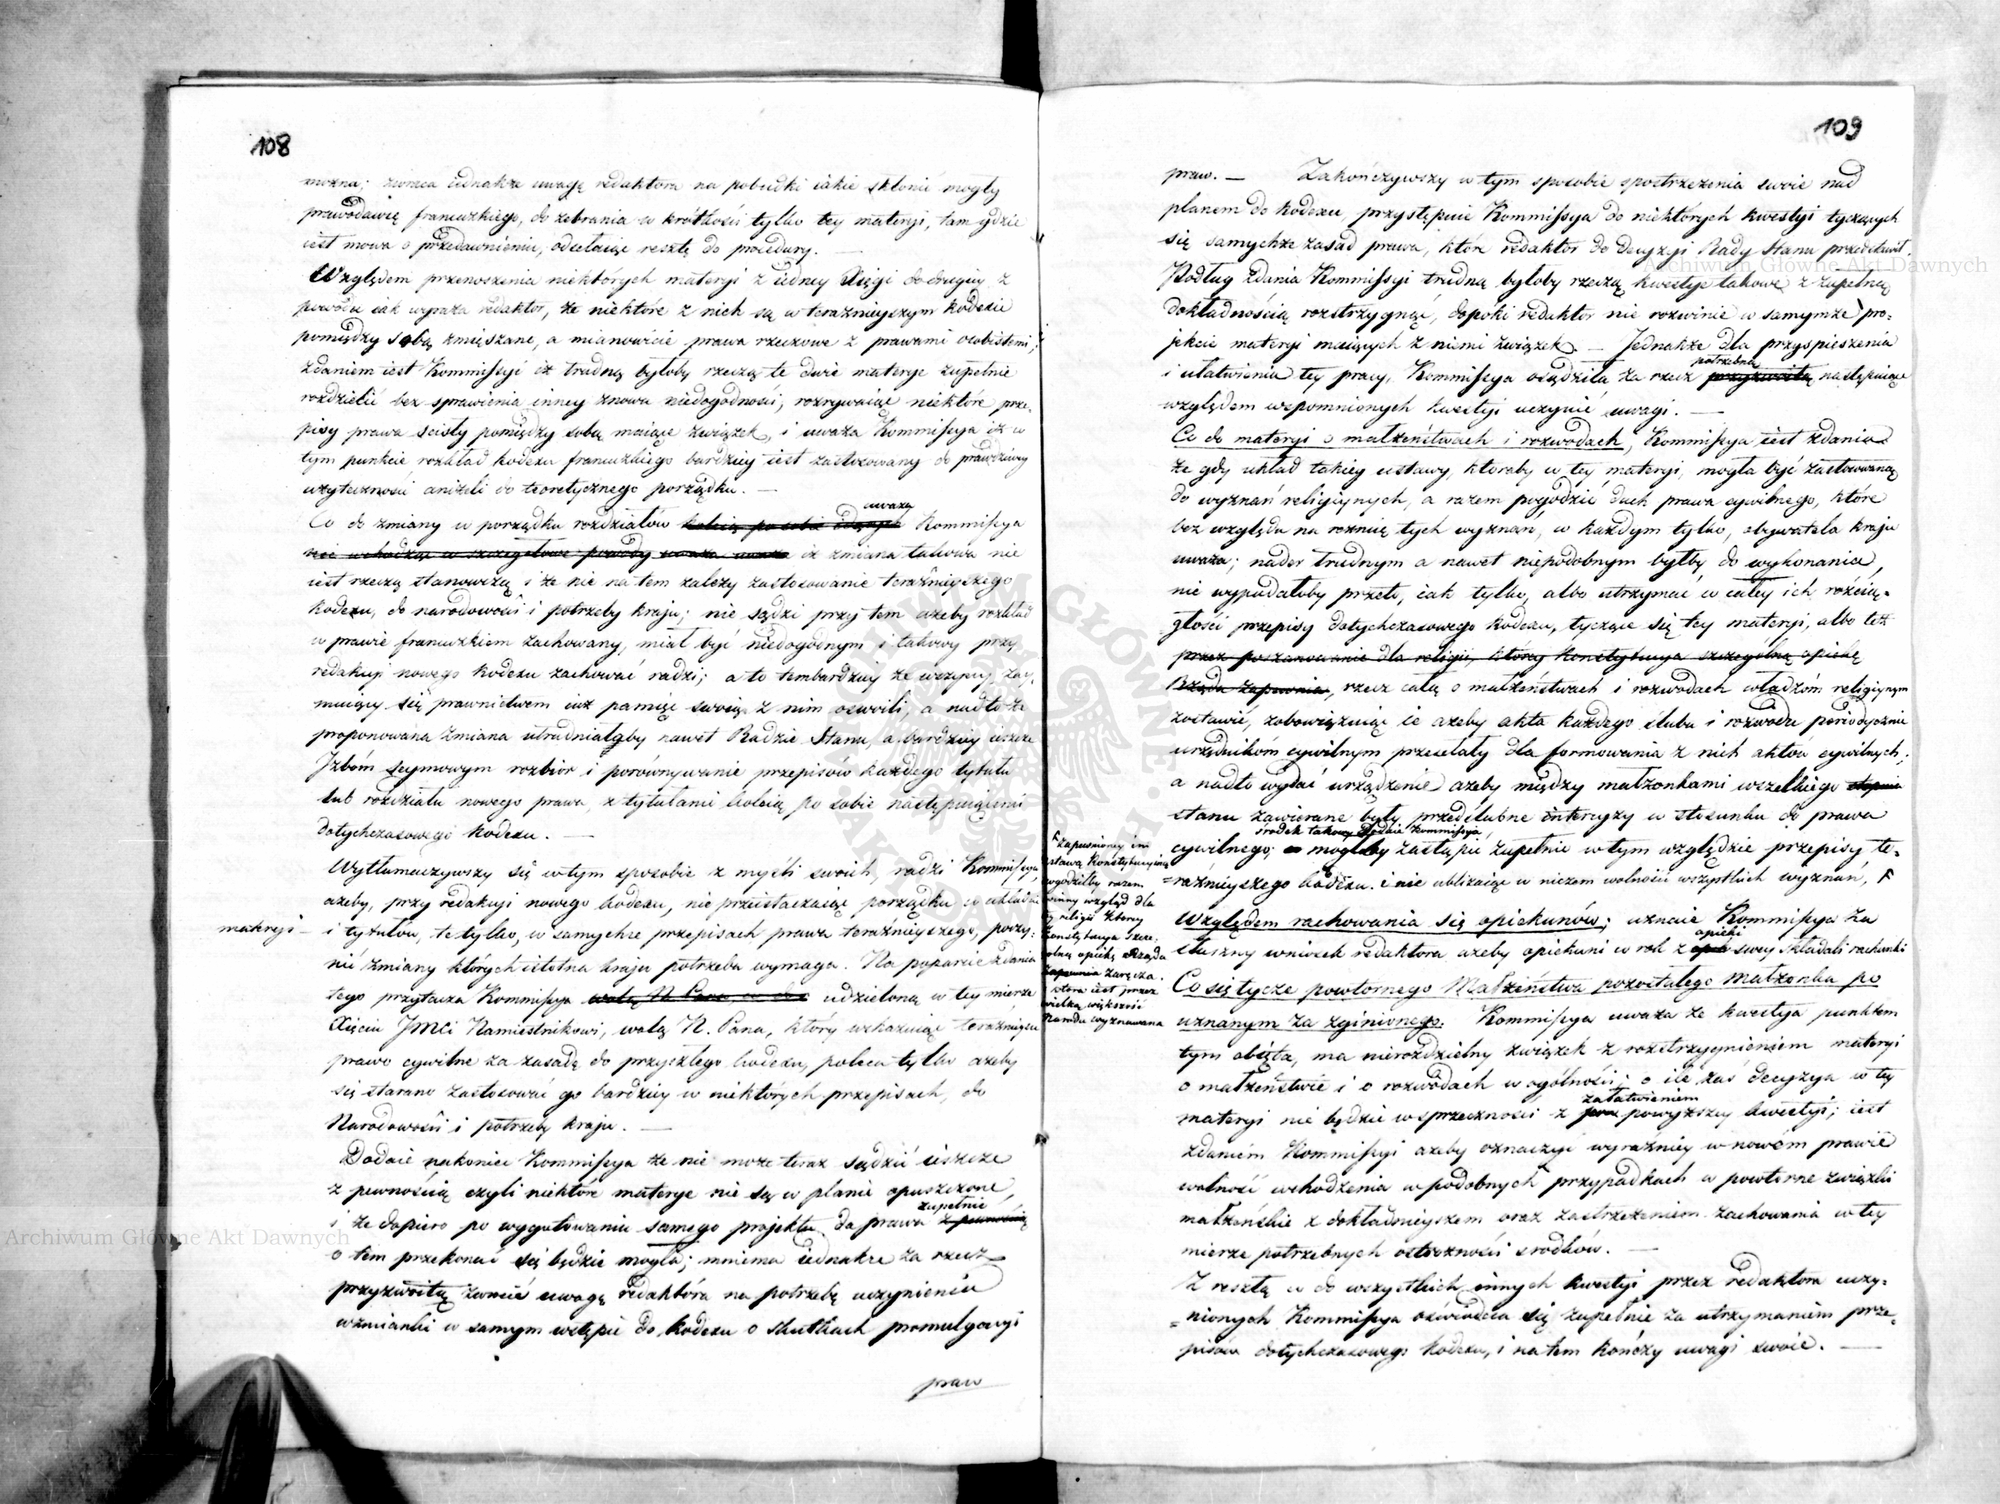 108
można; zwraca iednakże uwagę redaktora na pobudki iakie skłonić mogły
prawodawcę francuzkiego, do zebrania w krótkości tylko tey materyi, tam gdzie
iest mowa o przedawnieniu, odsełaiąc resztę do procedury. —
Względem przenoszenia niektórych materyi z iedney Xięgi do drugiey z
powodu iak wyraża redaktor, że niektóre z nich są w teraźnieyszym kodexie
pomiędzy sobą zmięszane, a mianowicie prawa rzeczowe z prawami osobistemi;
zdaniem iest Kommissyi iż trudną byłoby rzeczą te dwie materye zupełnie
rozdzielić bez sprawienia inney znowu niedogodności, rozrywaiąc niektóre prze-
pisy prawa scisły pomiędzy sobą maiące związek, i uważa Kommissya iż w
tym punkcie rozkład kodexu francuzkiego bardziey iest zastosowany do prawdziwey
użyteczności aniżeli do teoretycznego porządku. —
uważa
Co do zmiany w porządku rozdziałów koleią po sobie idących Kommissya
nie wchodząc w szczegółowe powody uważa iż zmiana takowa nie
iest rzeczą stanowczą i że nie na tem zależy zastosowanie teraźnieyszego
kodexu, do narodowości i potrzeby kraju; nie sądzi przy tem ażeby rozkład
w prawie francuzkiem zachowany, miał być niedogodnym i takowy przy
redakcyi nowego kodexu zachować radzi; a to tembardziey że wszyscy zay-
muiący się prawnictwem iuż pamięć swoią z nim oswoili, a nadto że
proponowana zmiana utrudniałaby nawet Radzie Stanu, a bardziey ieszcze
Izbom seymowym rozbiór i porównywanie przepisów każdego tytułu
lub rozdziału nowego prawa, z tytułami koleią po sobie następuiącemi
dotychczasowego kodexu. —
Wytłumaczywszy się w tym sposobie z myśli swoich, radzi Kommissya,
ażeby, przy redakcyi nowego kodexu, nie przeistaczaiąc porządku w układzie
materyi — i tytułów, te tylko, w samychże przepisach prawa teraźnieyszego, poczy-
nić zmiany których istotna kraju potrzeba wymaga. Na poparcie zdania
tego przytacza Kommissya wolę N. Pana udzieloną w tey mierze
Xięciu JMci Namiestnikowi, wolę N. Pana, który wskazuiąc teraźnieysze
prawo cywilne za zasadę do przyszłego kodexu, poleca tylko ażeby
się starano zastosować go bardziey w niektórych przepisach, do
Narodowości i potrzeby kraju. —
Dodaie nakoniec Kommissya że nie może teraz sądzić ieszcze
z pewnością czyli niektóre materye nie są w planie opuszczone,
zupełnie
i że dopiero po wygotowaniu samego projektu do prawa z pewnością
o tem przekonać się będzie mogła; mniema iednakże za rzecz
przyzwoitą zwrócić uwagę redaktora na potrzebę uczynienia
wzmianki w samym wstępie do kodexu o skutkach promulgacyi
praw
109
praw. — Zakończywszy w tym sposobie spostrzeżenia swoie nad
planem do kodexu, przystępuie Kommissya do niektórych kwestyi tyczących
się samychże zasad prawa, które redaktor do Decyzyi Rady Stanu przedstawił.
Podług zdania Kommissyi trudną byłoby rzeczą kwestye takowe z zupełną
dokładnością rozstrzygnąć, dopóki redaktor nie rozwinie w samymże pro-
jekcie materyi maiących z niemi związek. — Jednakże dla przyspieszenia
potrzebną
i ułatwienia tey pracy, Kommissya osądziła za rzecz przyzwoitą następuiące
względem wspomnionych kwestyi uczynić uwagi. —
Co do materyi o małżeństwach i rozwodach, Kommissya iest zdania
że gdy układ takiey ustawy, któraby w tey materyi, mogła być zastosowaną
do wyznań religiynych, a razem pogodzić duch prawa cywilnego, które
bez względu na róznicę tych wyznań, w każdym tylko, obywatela kraju
uważa; nader trudnym a nawet niepodobnym byłby do wykonania,
nie wypadałoby przeto, iak tylko, albo utrzymać w całey ich rozcią-
głości przepisy dotychczasowego kodexu, tyczące się tey materyi, albo też
przez poszanowanie dla religii, którey Konstytucya szczególną opiekę
Rządu zapewnia, rzecz całą o małżeństwach i rozwodach władzom religiynym
zostawić, zobowiązuiąc ie ażeby akta każdego ślubu i rozwodu peryodycznie
urzędnikom cywilnym przesełały dla formowania z nich aktów cywilnych;
a nadto wydać urządzenie ażeby między małżonkami wszelkiego stopnia
stanu zawierane były przedślubne intercyzy w stosunku do prawa
środek takowy zdaie Kommissya,
cywilnego; mogłby zastąpić zupełnie w tym względzie przepisy te-
raźnieyszego kodexu. i nie ubliżaiąc w niczem wolności wszystkich wyznań, F
F zapewnioney im
ustawą konstytucyiną
pogodziłby razem
winny względ dla
tey religii którey
Konstytucya szcze-
gólną opiekę Rządu
zapewnia zaręcza.
która iest przez
wielką większość
Narodu wyznawana
Względem rachowania się opiekunów; uznaie Kommissya za
opieki
słuszny wniosek redaktora ażeby opiekuni w rok z swey składali rachunki
Co się tycze powtórnego Małżeństwa pozostałego małżonka po
uznanym za zginionego. Kommissya uważa że kwestya punktem
tym obięta, ma nierozdzielny związek z rozstrzygnieniem materyi
o małżeństwie i o rozwodach w ogólności; o ile zaś decyzya w tey
załatwieniem
materyi nie będzie w sprzeczności z powyższey kwestyi; iest
zdaniem Kommissyi ażeby oznaczyć wyraźniey w nowém prawie
wolność wchodzenia w podobnych przypadkach w powtórne związki
małżeńskie z dokładnieyszem oraz zastrzeżeniem zachowania w tey
mierze potrzebnych ostrożności srodków. —
Z resztą co do wszystkich innych kwestyi przez redaktora uczy-
nionych Kommissya oświadcza się zupełnie za utrzymaniem prze-
pisów dotychczasowego kodexu, i na tem kończy uwagi swoie. —
Archiwum Główne Akt Dawnych
Archiwum Główne Akt Dawnych